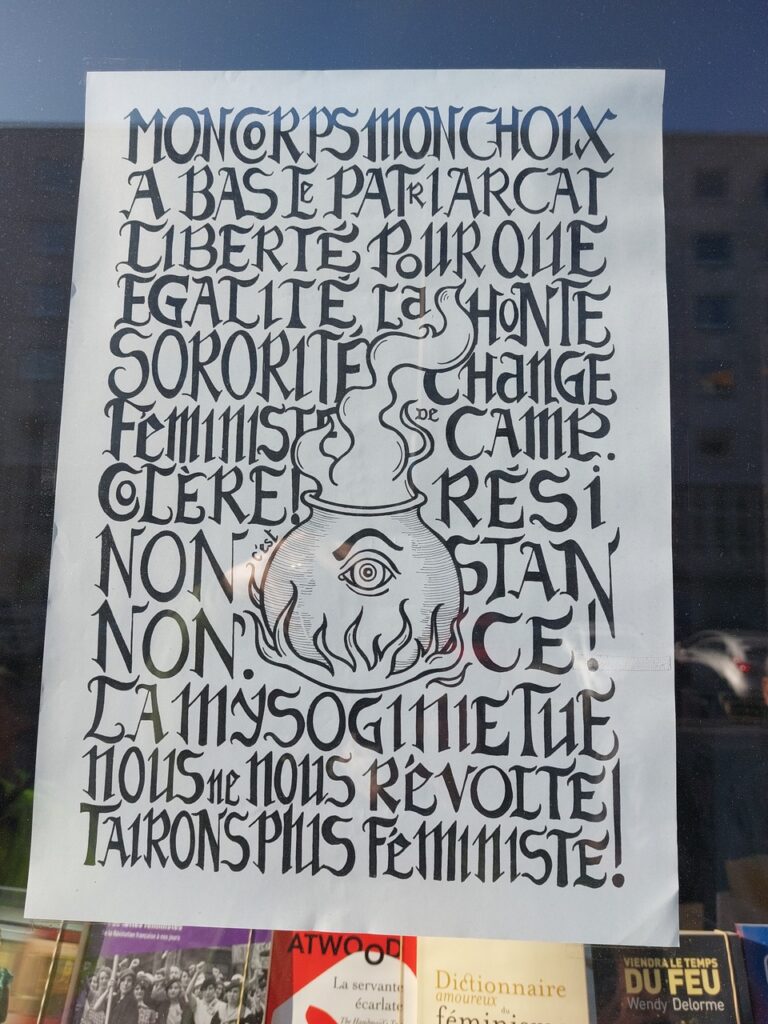 MON CORPS MON CHOIX
A BAS LE PATRIARCAT
LIBERTÉ POUR QUE
EGALITÉ La HONTE
SORORITÉ CHANGE
Féministe DE CAMP.
COLÈRE! RÉSI
NON c'est STAN
NON. CE!
LA MYSOGINIE TUE
NOUS ne NOUS RÉVOLTE!
TAIRONS PLUS FéMINISTE!
de la Révolution française à nos jours
ATWOOD
La servante
écarlate
The Handmaid's
Dictionnaire
amoureux du
féminisme
VIENDRA LE TEMPS
DU FEU
Wendy Delorme